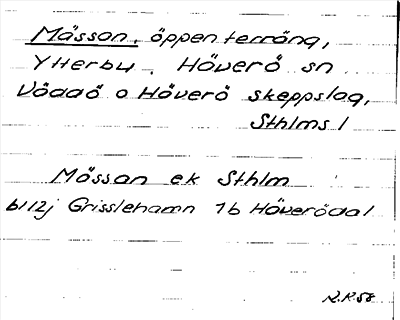 Måsson, öppen terräng,
Ytterby, Häverö sn
Väddö o Häverö skeppslag,
Sthlms l
Mässan ek Sthlm
bl 12j Grisslehamn 1b Häverödal
R.R. 58